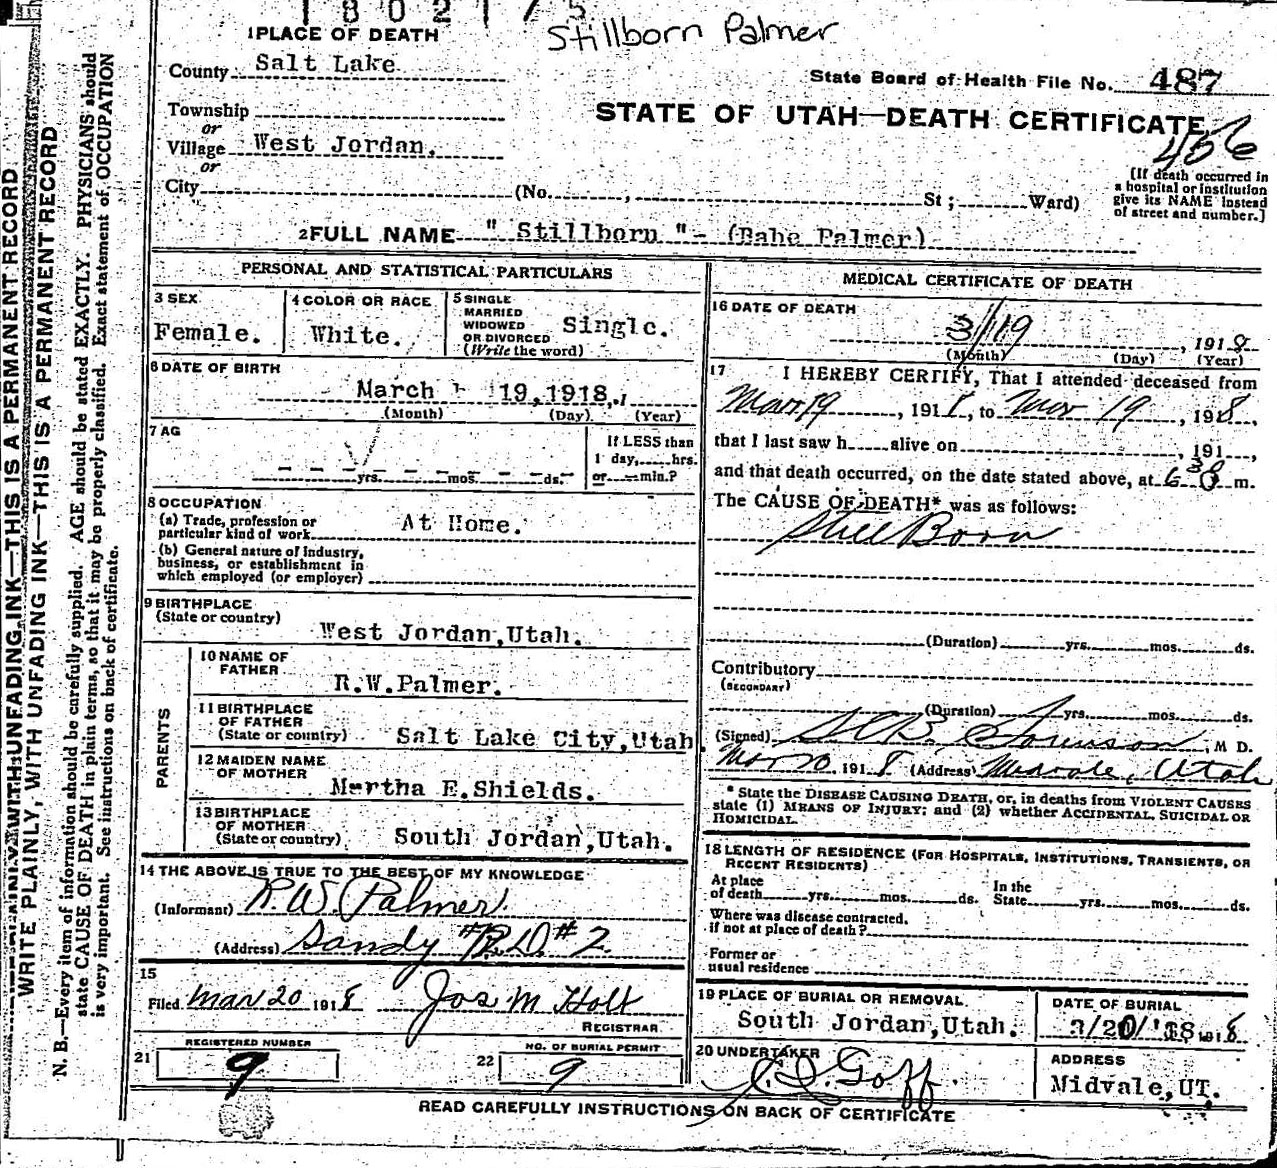 1802175
Stillborn Palmer
1 PLACE OF DEATH
County Salt Lake
State Board of Health File No. 487
Township
or
Village West Jordan,
or
City (No. , St ; Ward)
STATE OF UTAH—DEATH CERTIFICATE
456
[If death occurred in
a hospital or institution
give its NAME instead
of street and number.]
2 FULL NAME " Stillborn "- (Babe Palmer)
PERSONAL AND STATISTICAL PARTICULARS
3 SEX
Female.
4 COLOR OR RACE
White.
5 SINGLE
MARRIED
WIDOWED
OR DIVORCED
(Write the word)
Single.
6 DATE OF BIRTH
March 19, 1918,
(Month) (Day) (Year)
7 AG
yrs. mos. ds.
If LESS than
1 day, hrs.
or min.?
8 OCCUPATION
(a) Trade, profession or
particular kind of work At Home.
(b) General nature of industry,
business, or establishment in
which employed (or employer)
9 BIRTHPLACE
(State or country)
West Jordan, Utah.
PARENTS
10 NAME OF
FATHER
R.W.Palmer.
11 BIRTHPLACE
OF FATHER
(State or country) Salt Lake City, Utah
12 MAIDEN NAME
OF MOTHER
Martha E.Shields.
13 BIRTHPLACE
OF MOTHER
(State or country) South Jordan, Utah.
14 THE ABOVE IS TRUE TO THE BEST OF MY KNOWLEDGE
(Informant) R.W. Palmer.
(Address) Sandy # R.D. # 2.
15
Filed Mar 20 1918 Jos M Holt
REGISTRAR
21 REGISTERED NUMBER
9
22 NO. OF BURIAL PERMIT
9
MEDICAL CERTIFICATE OF DEATH
16 DATE OF DEATH
3/19, 1918
(Month) (Day) (Year)
17 I HEREBY CERTIFY, That I attended deceased from
Mar 19, 1918, to Mar 19, 1918,
that I last saw h alive on , 191 ,
and that death occurred, on the date stated above, at 6 m.
The CAUSE OF DEATH* was as follows:
Still Born
(Duration) yrs. mos. ds.
Contributory
(SECONDARY)
(Duration) yrs. mos. ds.
(Signed) M D.
Mar 20 1918 (Address) Midvale, Utah
* State the DISEASE CAUSING DEATH, or, in deaths from VIOLENT CAUSES
state (1) MEANS OF INJURY; and (2) whether ACCIDENTAL, SUICIDAL OR
HOMICIDAL.
18 LENGTH OF RESIDENCE (FOR HOSPITALS, INSTITUTIONS, TRANSIENTS, OR
RECENT RESIDENTS)
At place
of death yrs. mos. ds.
In the
State yrs. mos. ds.
Where was disease contracted,
if not at place of death?
Former or
usual residence
19 PLACE OF BURIAL OR REMOVAL
South Jordan, Utah.
DATE OF BURIAL
3/20/'18 1918
20 UNDERTAKER
Goff.
ADDRESS
Midvale, UT.
READ CAREFULLY INSTRUCTIONS ON BACK OF CERTIFICATE
WRITE PLAINLY, WITH UNFADING INK—THIS IS A PERMANENT RECORD
WRITE PLAINLY, WITH UNFADING INK—THIS IS A PERMANENT RECORD
N. B.—Every item of information should be carefully supplied. AGE should be stated EXACTLY. PHYSICIANS should
state CAUSE OF DEATH in plain terms, so that it may be properly classified. Exact statement of OCCUPATION
is very important. See instructions on back of certificate.